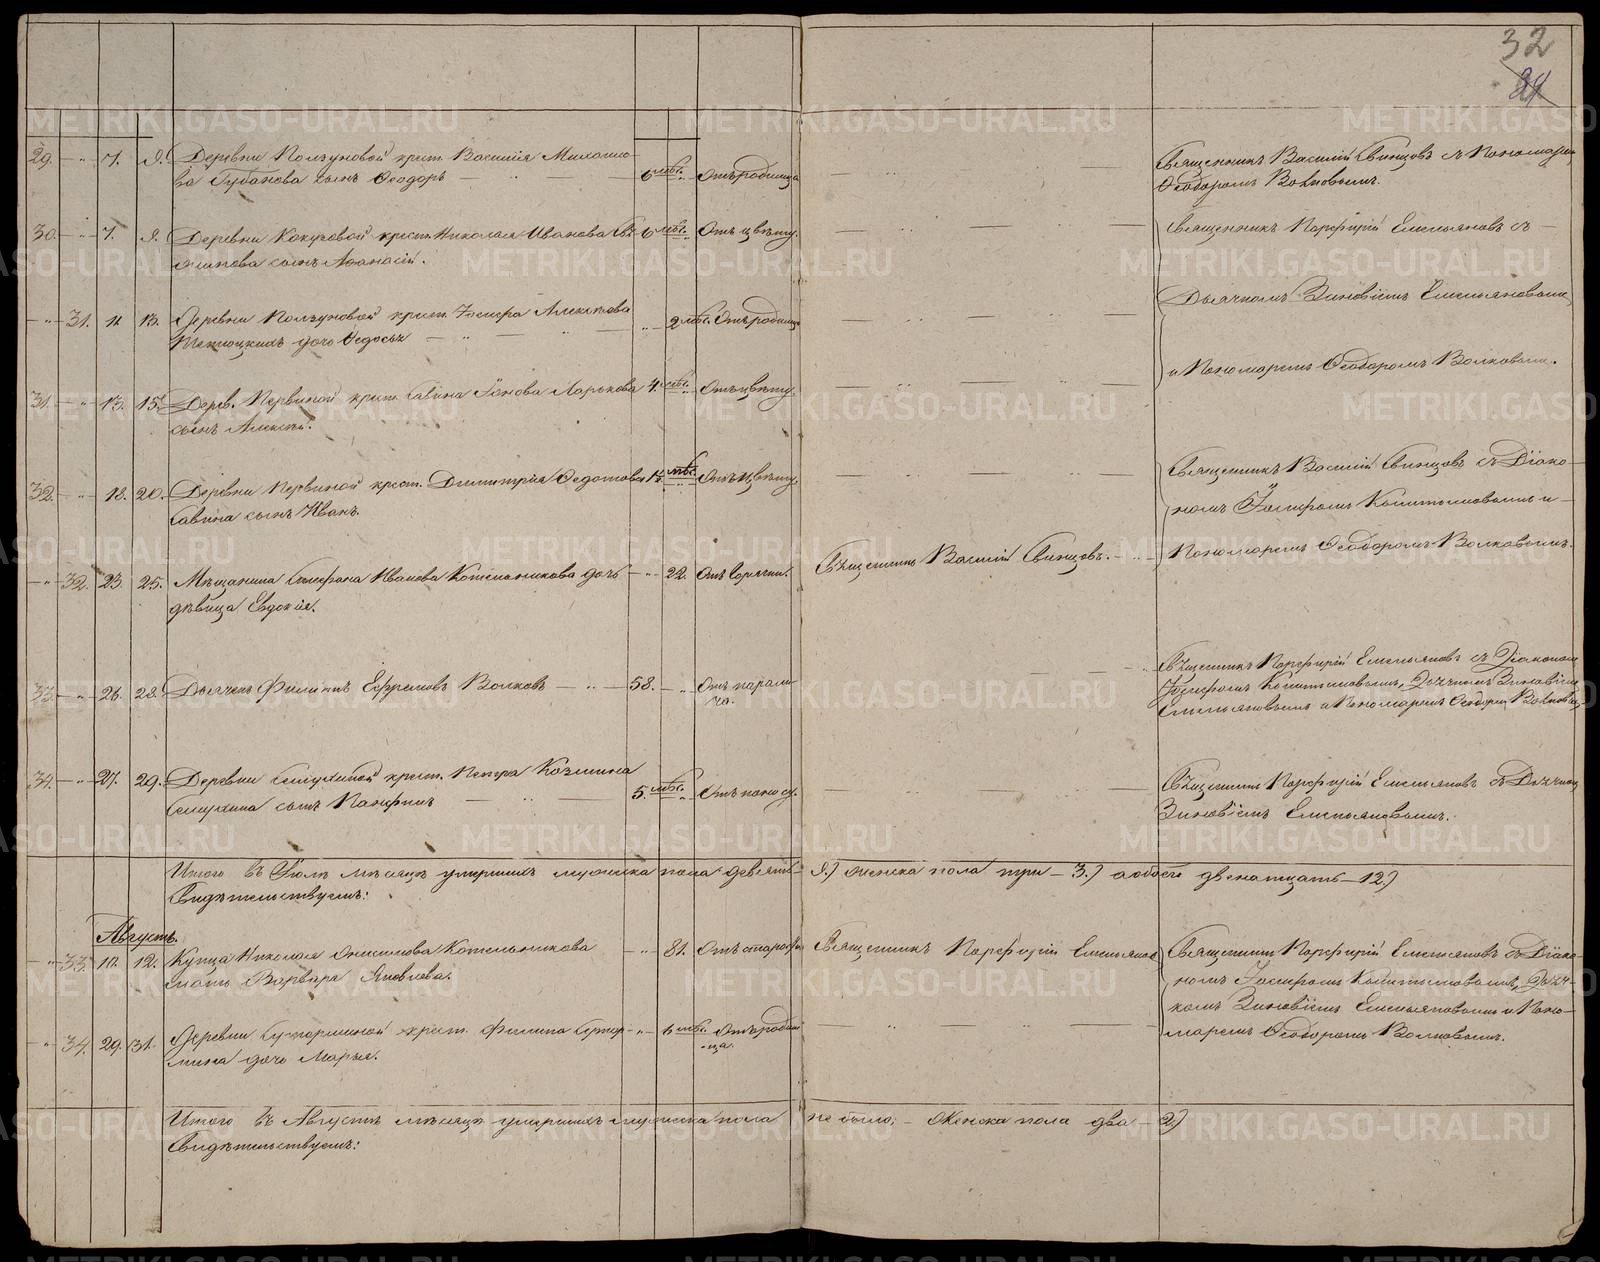 32
24
29. 7. 9. Деревни Ползуновой крест. Василія Михайло-
ва Губанова сынъ Ѳеодоръ
6 мѣс. Отъ родимца
Священникъ Василій Свинцовъ съ Пономарем
Ѳеодоромъ Волковымъ.
30. 7. 9. Деревни Кокуровой крест. Николая Иванова
сынъ Аѳанасій.
6 мѣс. Отъ цвѣту.
Священникъ Порфирій Емельяновъ съ
Дьячкомъ Зиновіемъ Емельяновымъ
и Пономаремъ Ѳеодоромъ Волковымъ.
31. 11. 13. Деревни Ползуновой крест. Іосифа Алексѣева
дочь Ѳедосья
2 мѣс. Отъ родимца
31. 13. 15. Дерев. Первиной крест. Савина Іонова Ларькова
сынъ Алексѣй.
4. мѣс. Отъ цвѣту.
32. 18. 20. Деревни Первиной крест. Димитрія Ѳедотова
Савина сынъ Иванъ.
мѣс. Отъ цвѣту.
Священникъ Василій Свинцовъ съ Діако-
номъ Іосифомъ и
Пономаремъ Ѳеодоромъ Волковымъ.
32. 23. 25. Мѣщанина Стефана Иванова Котельникова дочь
дѣвица Евдокія.
22. Отъ горячки.
Священникъ Василій Свинцовъ.
33. 26. 28. Дьячекъ Филиппъ Ефремовъ Волковъ
58. Отъ парали-
ча.
Священникъ Порфирій Емельяновъ съ Діакономъ
Іосифомъ Дьячкомъ Зиновіемъ
Емельяновымъ и Пономаремъ Ѳеодоромъ Волковымъ
34. 27. 29. Деревни Семухиной крест. Петра Козмина
Семухина сынъ Панфилъ
5. мѣс. Отъ поносу.
Священникъ Порфирій Емельяновъ съ Дьячкомъ
Зиновіемъ Емельяновымъ.
Итого въ Іюлѣ мѣсяцѣ умершихъ мужеска пола девять 9.) женска пола три 3.) а обоего двенатцать 12.)
Свидѣтельствуемъ:
Августъ.
33. 10. 12. Купца Николая Онисимова Котельникова
мать Варвара Яковлева.
81. Отъ старости
Священникъ Порфирій Емельянов
Священникъ Порфирій Емельяновъ съ Діако-
номъ Іосифомъ Дьяч-
комъ Зиновіемъ Емельяновымъ и Поно-
маремъ Ѳеодоромъ Волковымъ.
34. 29. 31. Деревни крест. Филипа
дочь Марья.
6 мѣс. Отъ родим-
ца.
Итого въ Августѣ мѣсяцѣ умершихъ мужеска пола не было, Женска пола два 2)
Свидѣтельствуемъ:
METRIKI.GASO-URAL.RU